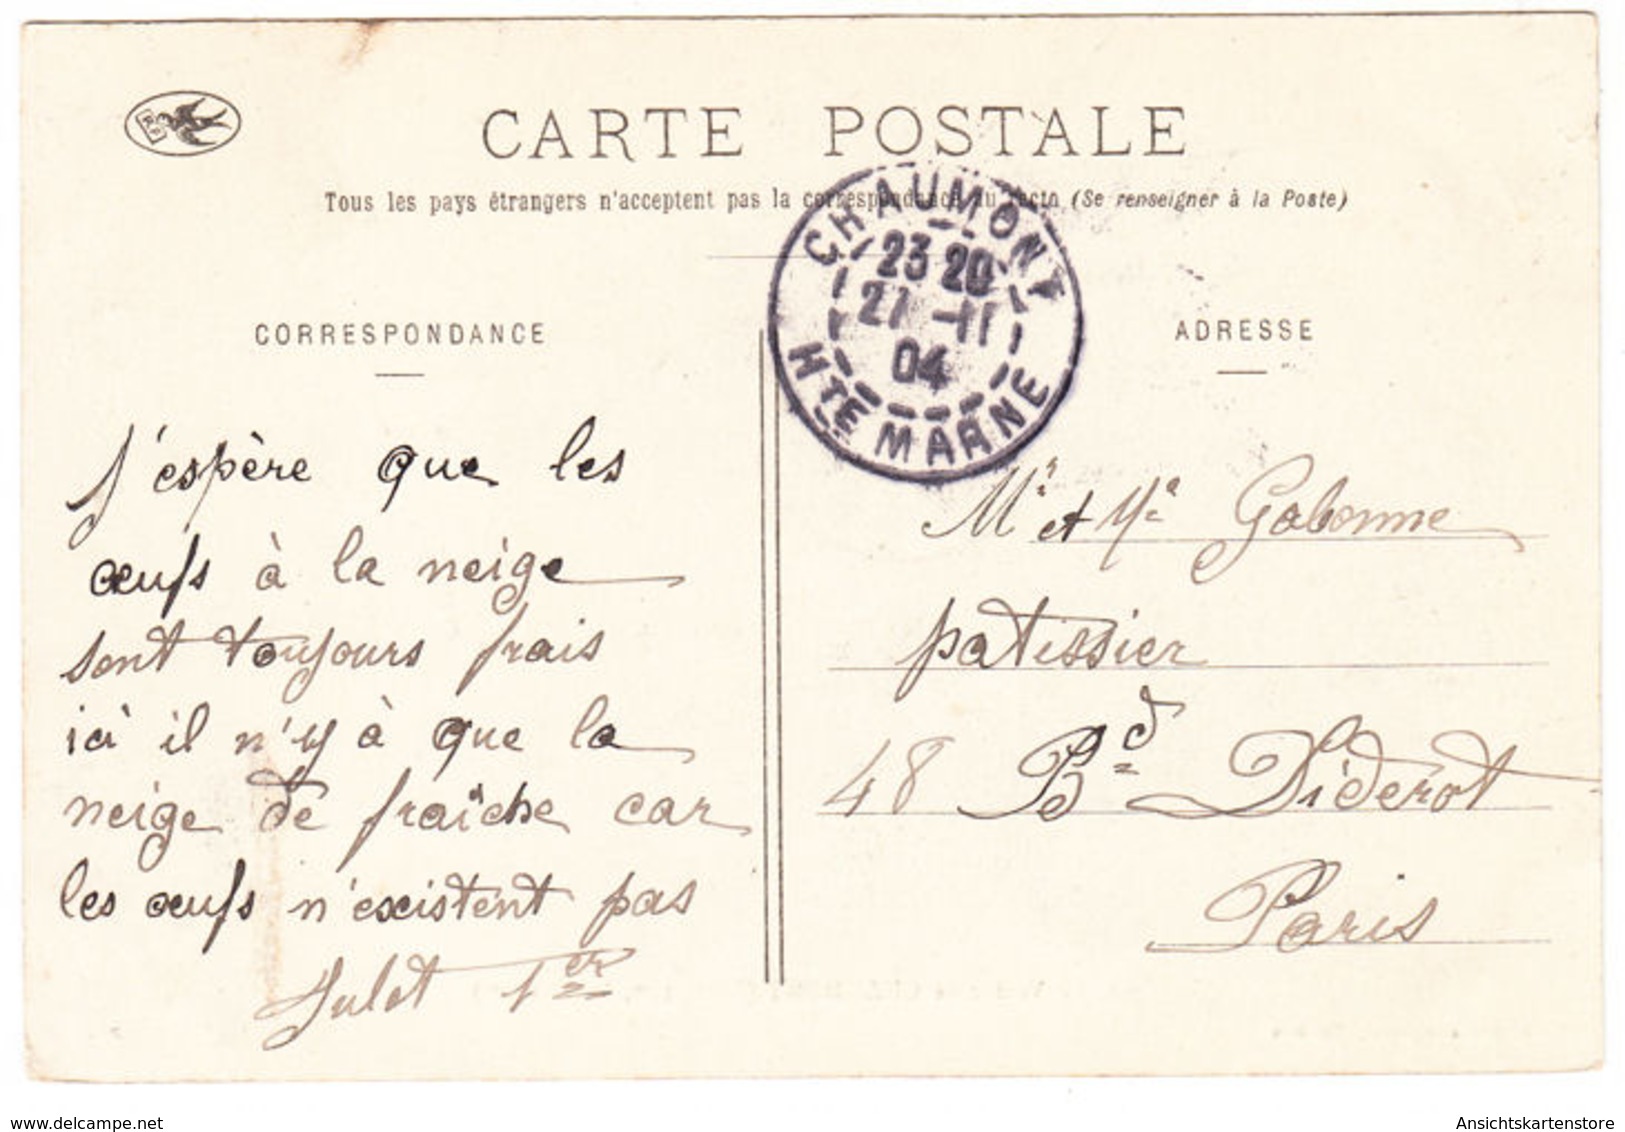 CARTE POSTALE
Tous les pays étrangers n'acceptent pas la correspondance au recto (Se renseigner à la Poste)
CHAUMONT
23 20
27 -11
04
HTE MARNE
CORRESPONDANCE
J'espère que les
œufs à la neige
sont toujours frais
ici il n'y à que la
neige de fraîche car
les œufs n'existent pas
Julot 1er
ADRESSE
Mr et Me Gabonne
patissier
48 Bd Diderot
Paris
delcampe.net
Ansichtskartenstore